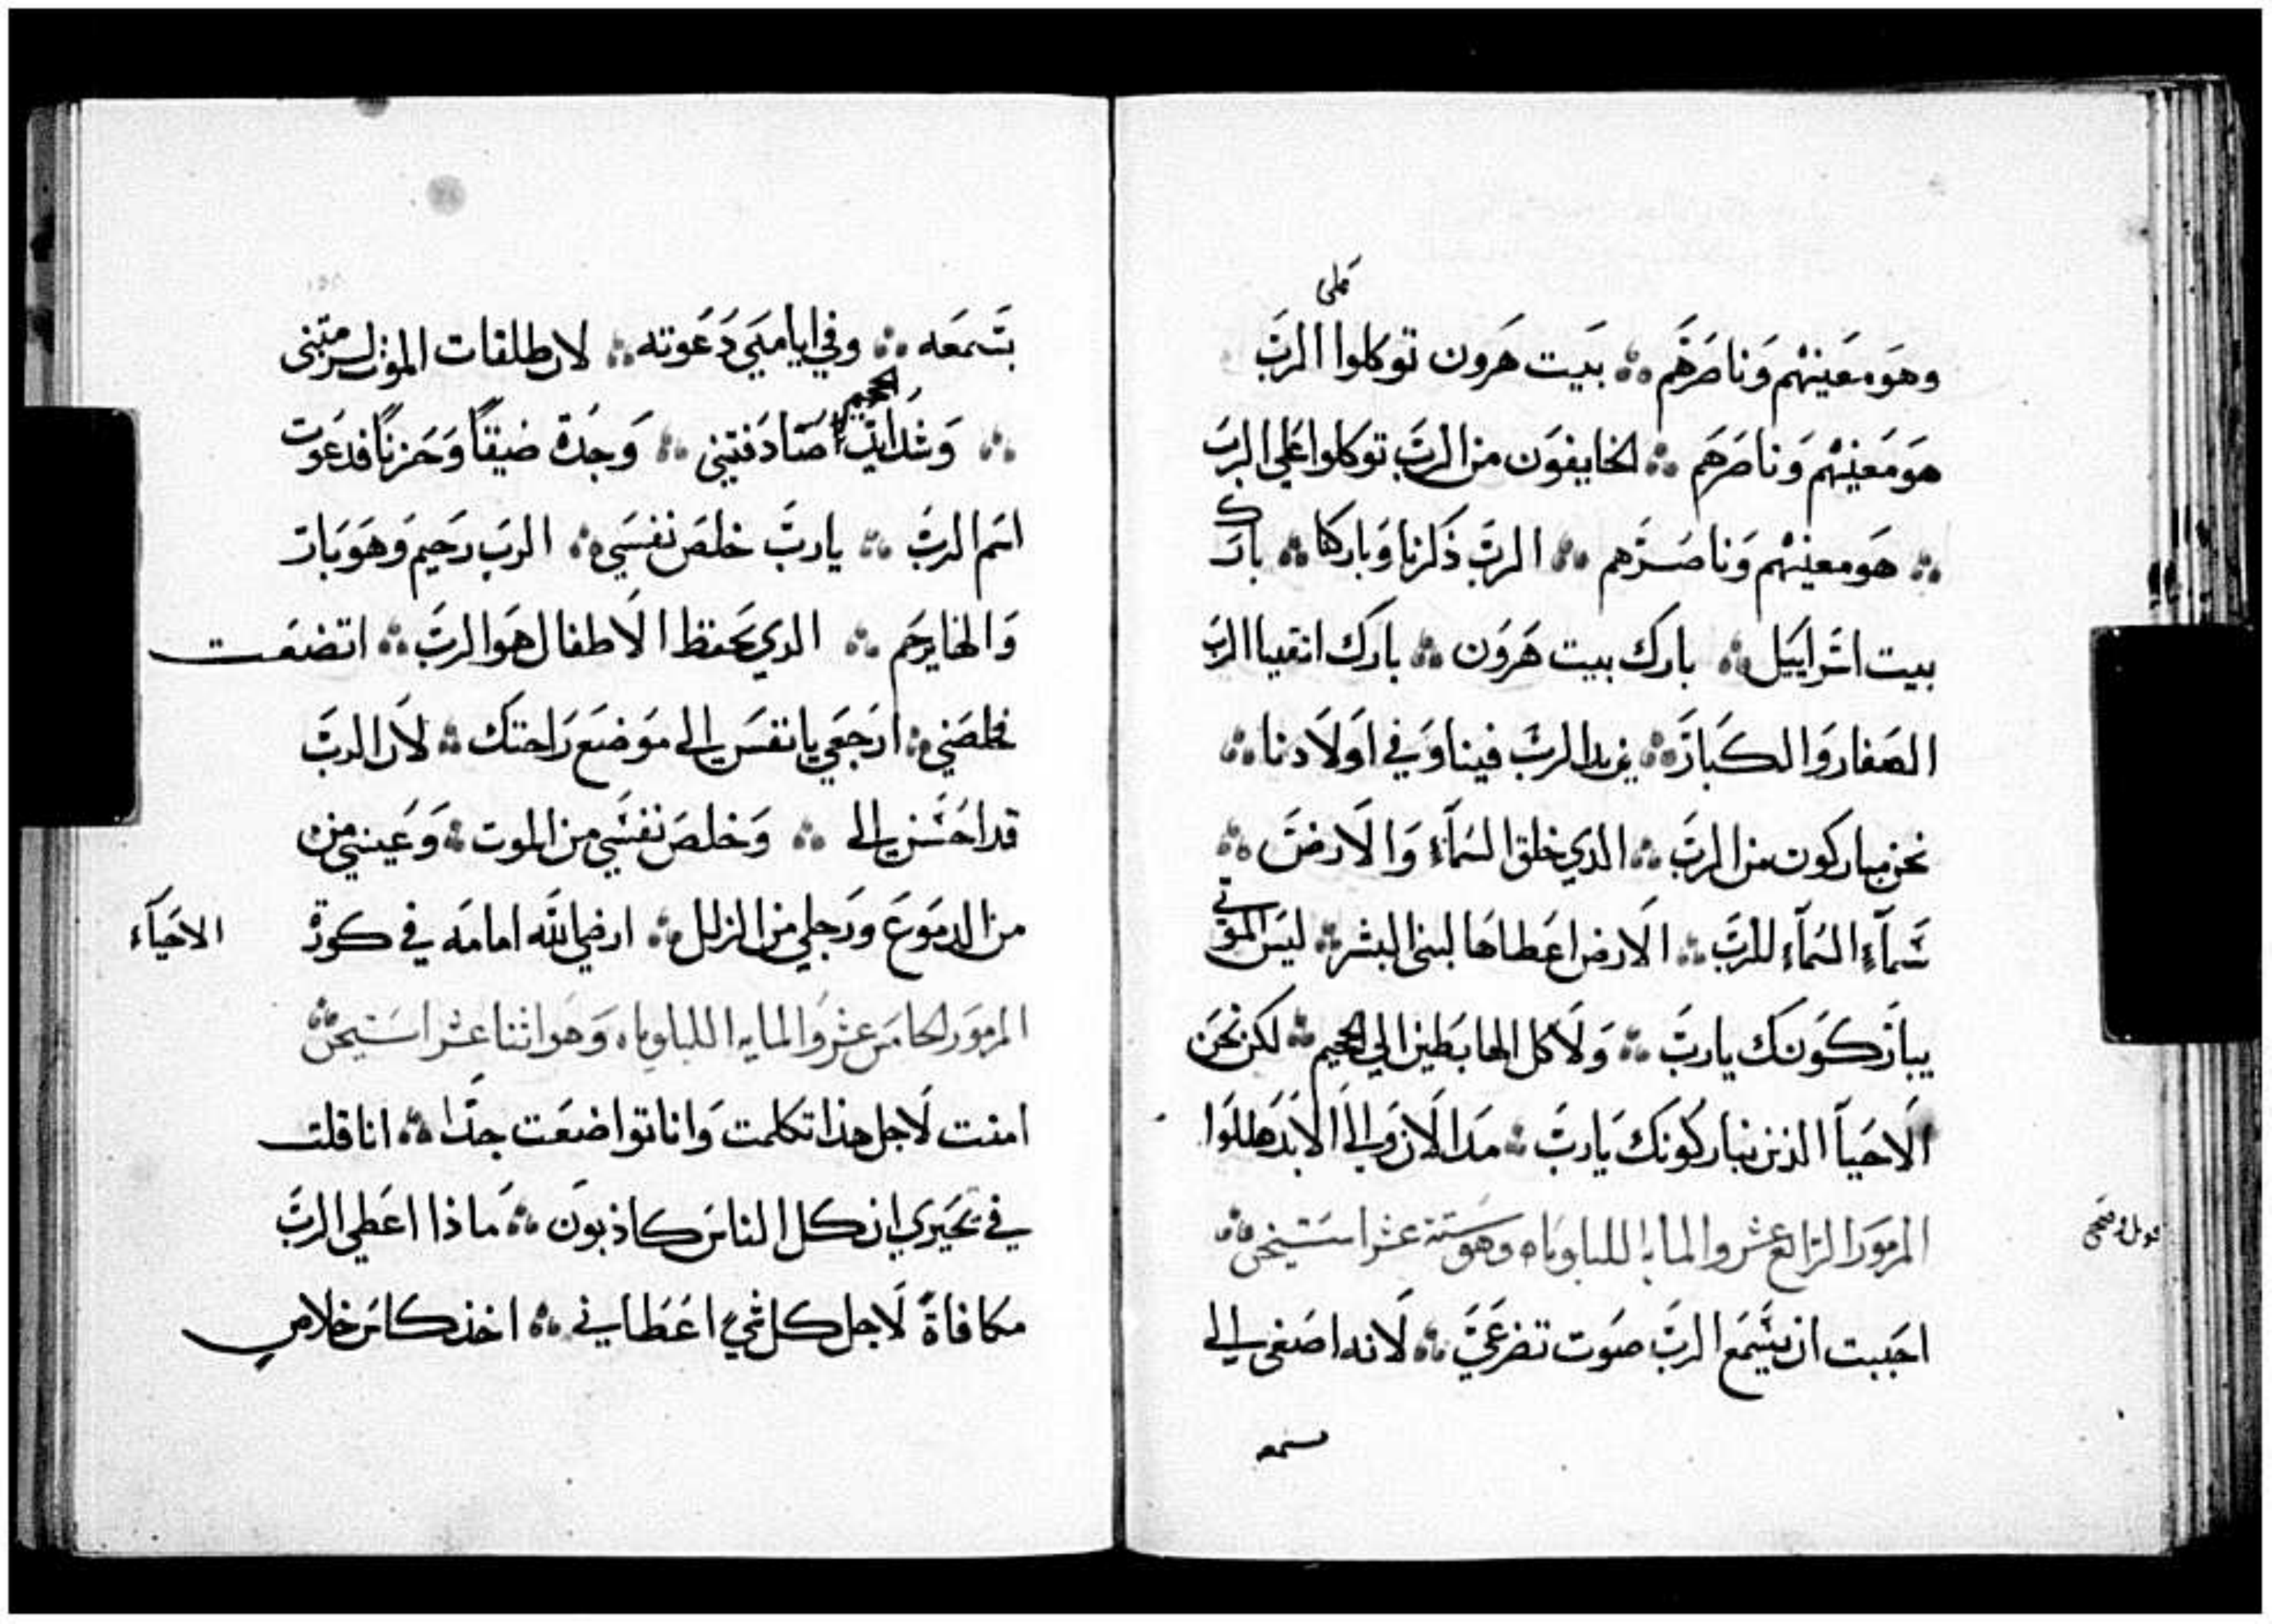 على
وهو معينهم وناصرهم ܀ بيت هرون توكلوا الرب
هو معينهم وناصرهم ܀ الخايفون من الرب توكلوا علي الرب
܀ هو معينهم وناصرهم ܀ الرب ذكرنا وباركا ܀ بارك
بيت اسراييل ܀ بارك بيت هرون ܀ بارك اتقيا الرب
الصغار والكبار ܀ يزيد الرب فينا وفي اولادنا ܀
نحن مباركون من الرب ܀ الدي خلق السماء والارض ܀
سماء السماء للرب ܀ الارض اعطاها لبني البشر ܀ ليس الموتي
يباركونك يارب ܀ ولا كل الهابطين الي الجحيم ܀ لكن نحن
الاحيا الذين نباركونك يارب ܀ مد الان والي الابد هللوا
المزمور الرابع عشر والمايه الليلوياه وهو ستة عشر استيخن ܀
احببت ان يسمع الرب صوت تضرعي ܀ لانه اصغي الي
سمعه
بسمعه ܀ وفي ايامي دعوته ܀ لان طلقات الموت
الجحيم
܀ وشدايد صادفتني ܀ وجدة ضيقاً وحزناً فدعوت
اسم الرب ܀ يارب خلص نفسي ܀ الرب رحيم وهو بار
والهنا يرحم ܀ الدي يحفظ الاطفال هو الرب ܀ اتضعت
فخلصني ܀ ارجعي يا نفسي الي موضع راحتك ܀ لان الرب
قد احسن الي ܀ وخلص نفسي من الموت ܀ وعيني من
من الدموع ورجلي من الزلل ܀ ارضي الله امامه في كورة
الاحياء
المزمور الخامس عشر والمايه الليلوياه وهو اثنا عشر استيخن ܀
امنت لاجل هذا تكلمت وانا تواضعت جدا ܀ انا قلت
في تحيري ان كل الناس كاذبون ܀ ماذا اعطي الرب
مكافاة لاجل كل شي اعطاني ܀ اخذ كاس خلاص